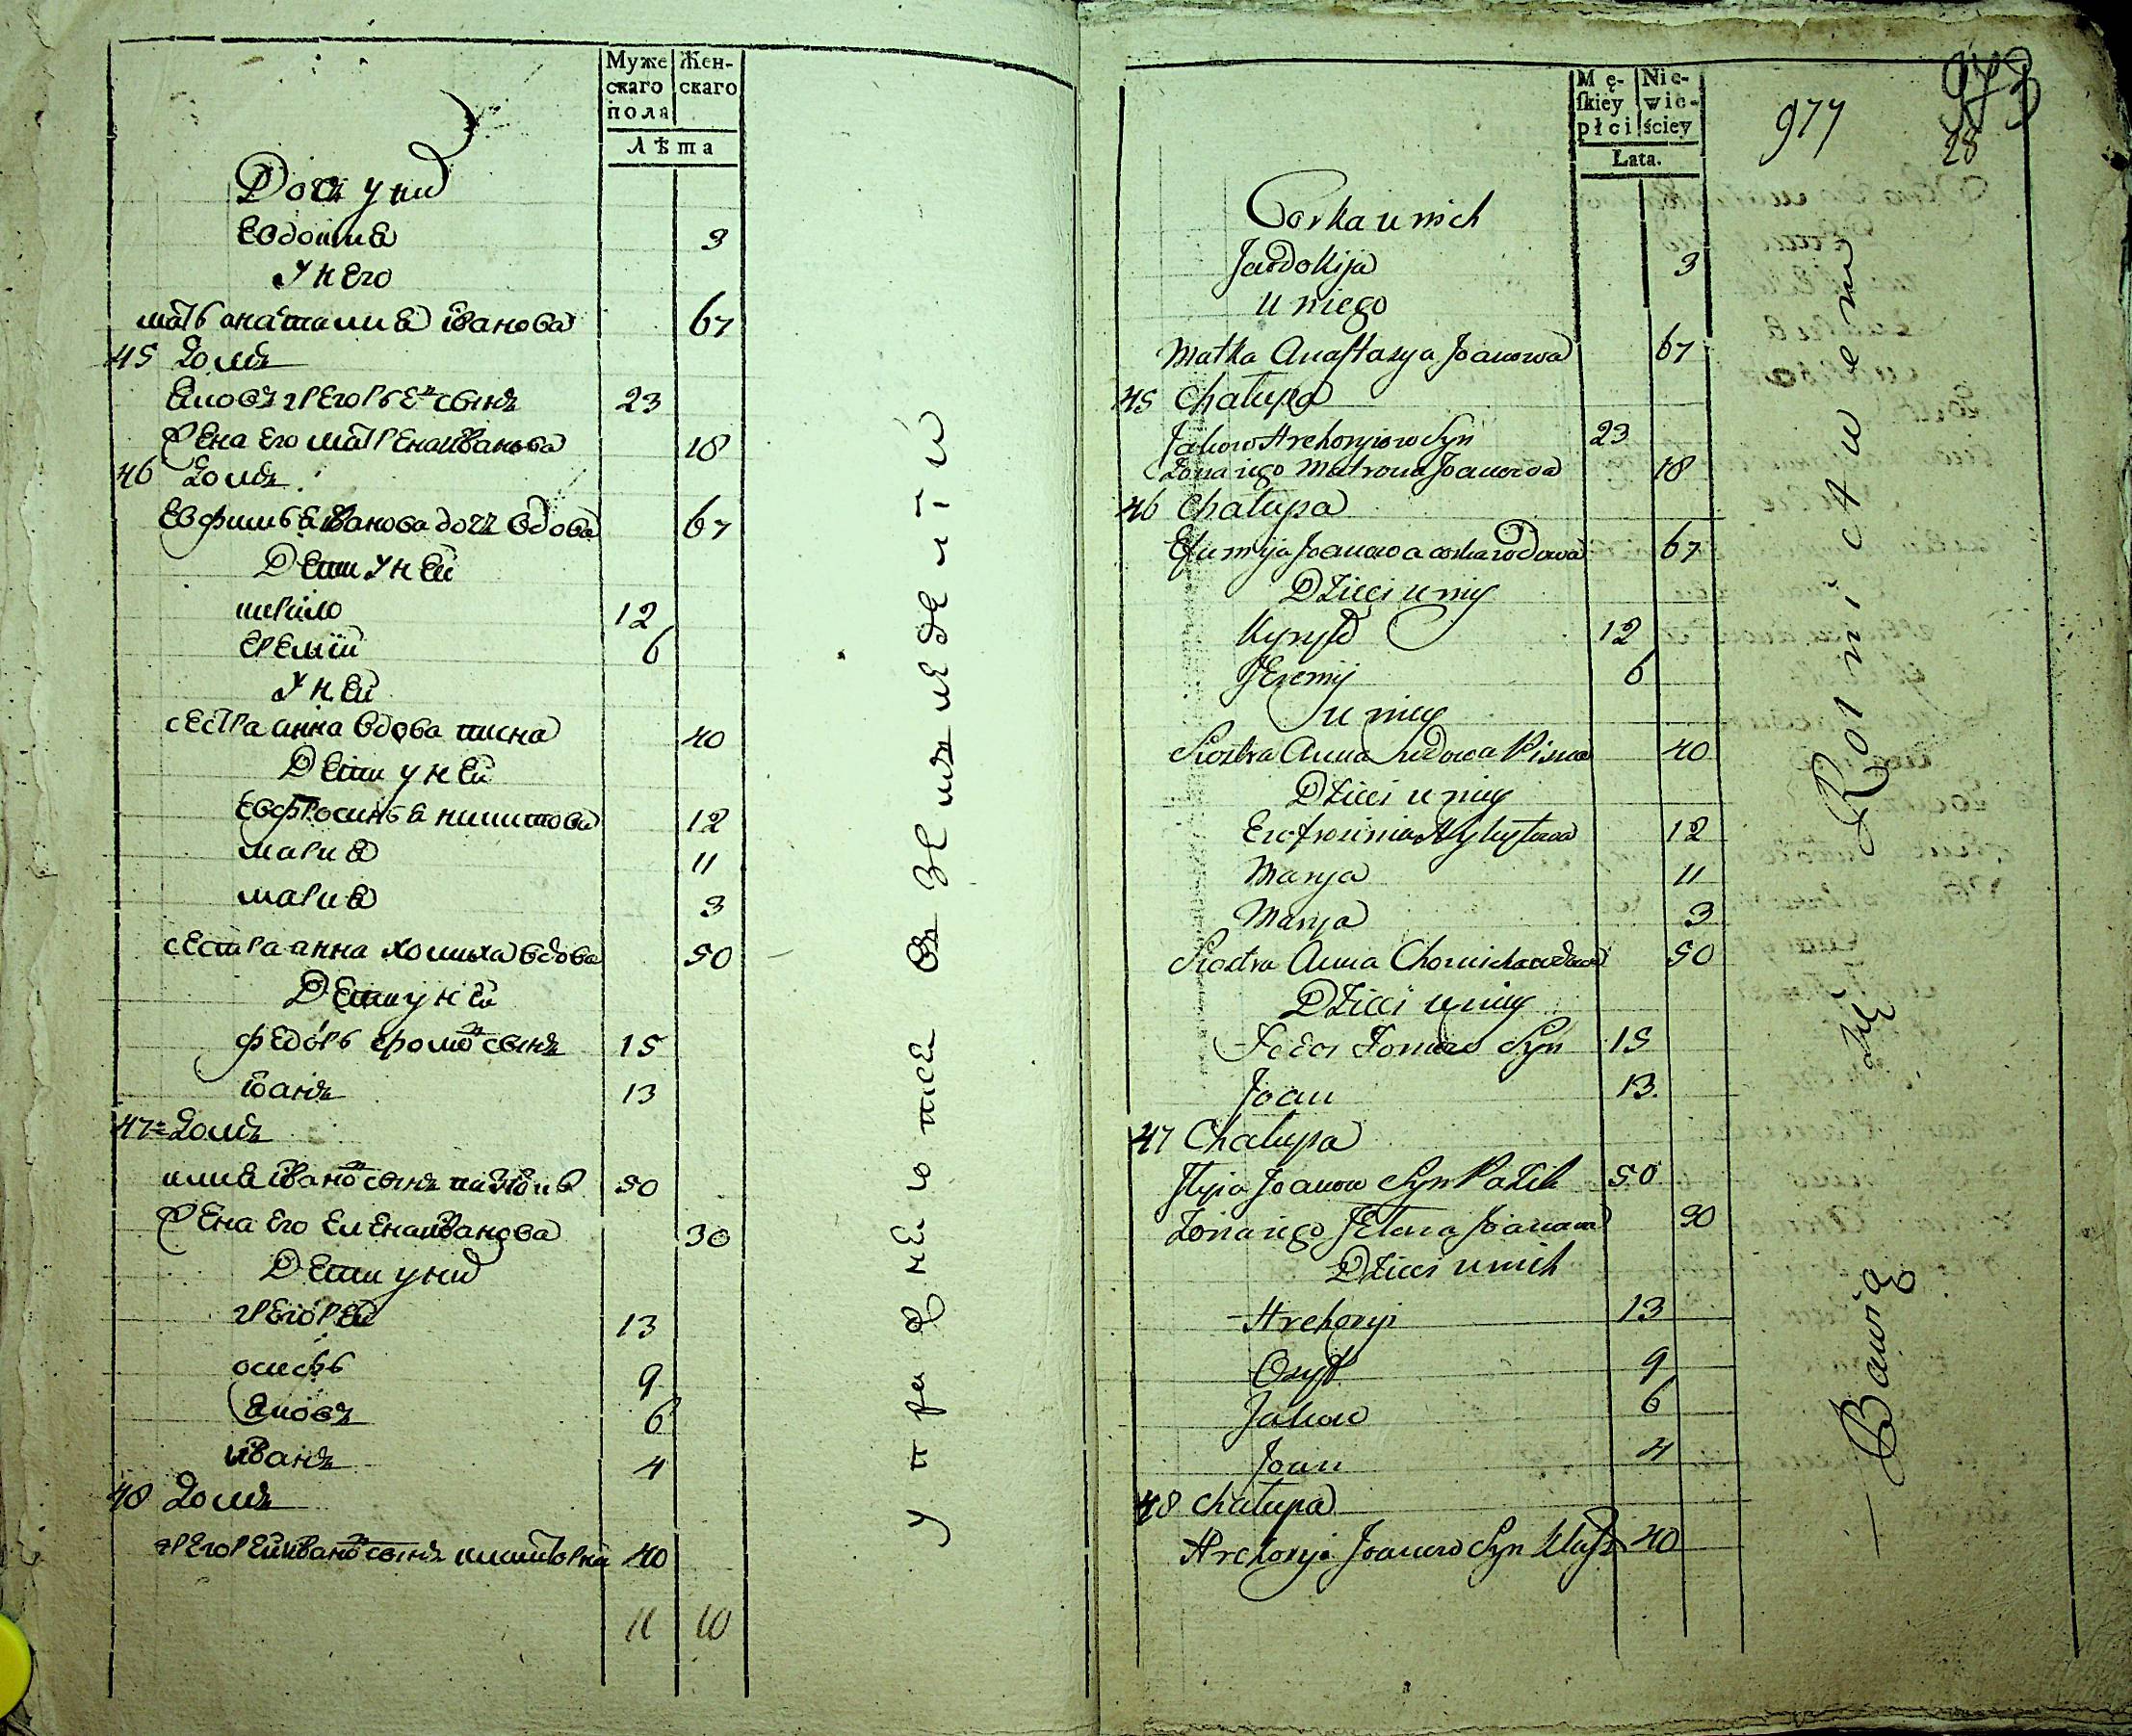 Муже
скаго
пола
Жен-
скаго
Лѣта
Дочь у них
Евдокия 3
У него
мать анастасия Иванова 67
45 домъ
Яковъ Грегорьевъ сынъ 23
Жена его матрена Иванова 18
46 домъ
Евфимья Иванова дочь вдова 67
Дети у ней
кирило 12
Еремiй 6
У ней
сестра анна вдова писна 40
Дети у ней
Евфросинья никитова 12
мария 11
мария 3
сестра анна хомиха вдова 50
Дети у ней
федоръ фомовъ сынъ 15
Iоанъ 13
47 домъ
илия Ивановъ сынъ 50
Жена его Елена Иванова 30
Дети у них
Грегорей 13
осифъ 9
Яковъ 6
Иванъ 4
48 домъ
Грегорей Ивановъ сынъ 40
11 10
Упражнению писе въ земледелiи
Mę-
ſkiey
płci
Nie-
wie-
ściey
Lata.
977
28
Corka u nich
Jawdokija 3
u niego
Matka Anastasya Joanowa 67
45 Chałupa
Jakow Hrehoryiow Syn 23
Żona iego Matrona Joanowa 18
46 Chałupa
Efumija Joanowa corka wdowa 67
Dzieci u niey
Kyryło 12
Jeremij 6
u niey
Siostra Anna wdowa Pisna 40
Dzieci u niey
Ewfrosinia Mykytowa 12
Marya 11
Marya 3
Siostra Anna Chomicha wdowa 50
Dzieci u niey
Fedor Fomow Syn 15
Joan 13.
47 Chałupa
Jlyia Joanow Syn Pazik 50
Żona iego Jelena Joanowa 30
Dzieci u nich
Hrehoryi 13
Osyf 9
Jakow 6
Joan 4
48 Chałupa
Hrehoryi Joanow Syn 40
– Bawią się Rolnictwem